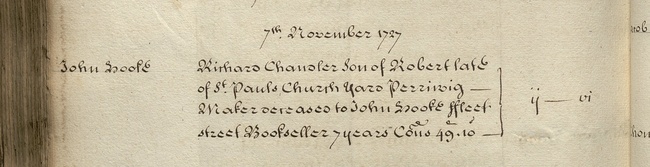 7th November 1727
John Hooke
Richard Chandler Son of Robert late
of St Pauls Church Yard Perriwig —
Maker deceased to John Hooke ffleet
street Bookseller 7 years Cons 49.10 —
ij — vi